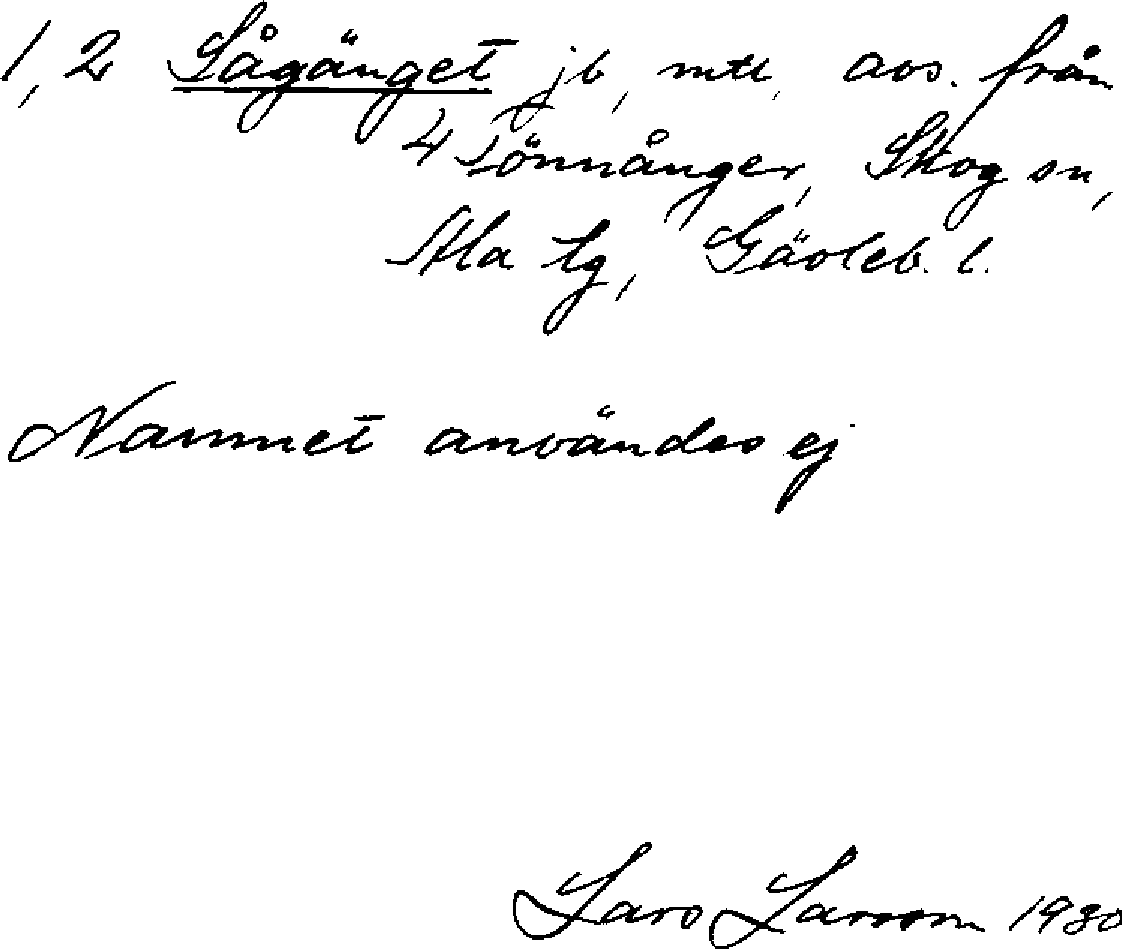 1,2 Sågänget jb, mtl, avs. från
4 Lönnånger, Skog sn,
Ala tg, Gävleb. l.
Namnet användes ej
Lars Larsson 1930